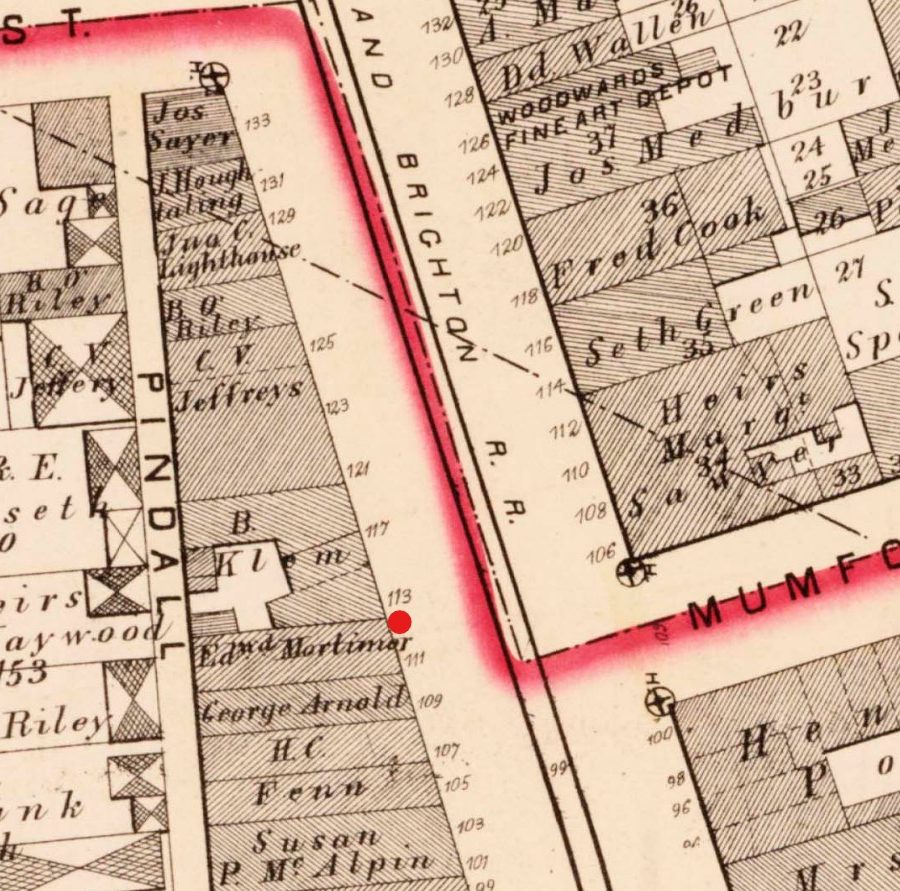 ST.
AND BRIGHTON R. R.
PINDALL
MUMFO
H
Jos
Sayer
133
J. Hough
taling
131
129
Jno C.
Lighthouse
B. O'
Riley
C. V.
Jeffreys
125
123
121
B.
Klem
117
113
Edwd Mortimer
111
George Arnold
109
H. C.
Fenn
107
105
Susan
P. Mc Alpin
103
101
99
Sage
B. O'
Riley
C. V.
Jeffery
R. E.
seth
0
eirs
aywood
153
Riley
ank
132
130
128
126
124
122
120
118
116
114
112
110
108
106
A Mu
26
Dd Wallen
WOODWARDS
FINE ART DEPOT
37
Jos Med
22
23
bur
24
25
26
J
Me
P
36
Fred Cook
27
S.
Spe
Seth Green
35
Heirs
Margt
34
Sawyer
33
H
H
100
98
96
99
Hen
Po
Mrs